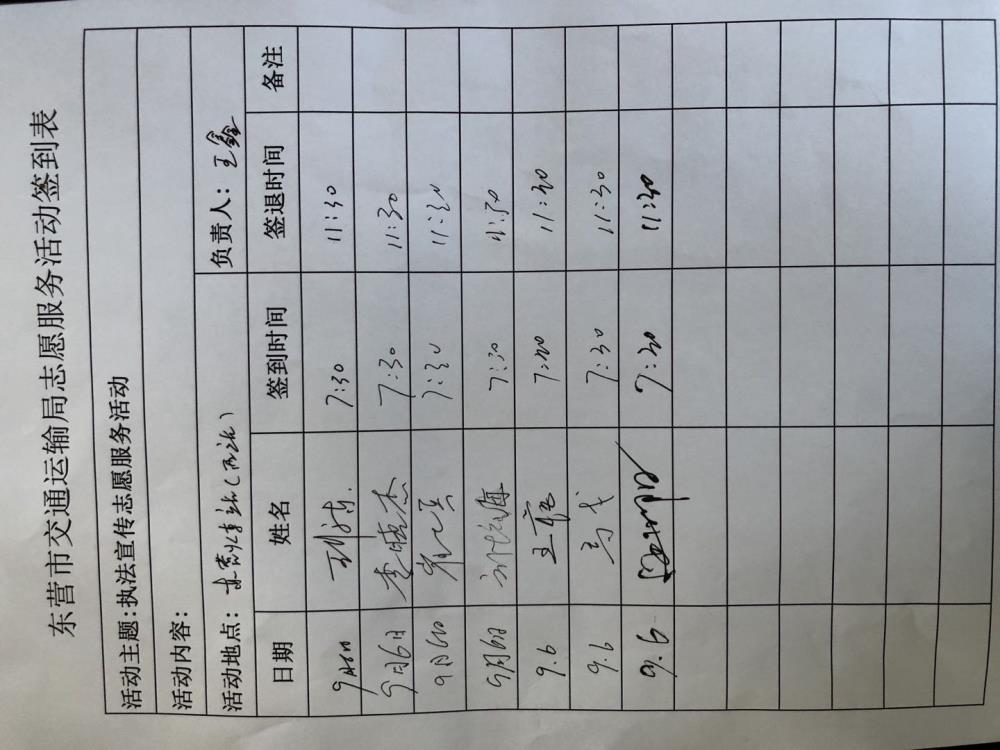 东营市交通运输局志愿服务活动签到表
活动主题:执法宣传志愿服务活动
活动内容:
活动地点: 东营火车站(西站) 负责人: 王鑫
日期 姓名 签到时间 签退时间 备注
9月6日 7:30 11:30
9月6日 李晓杰 7:30 11:30
9月6日 7:30 11:30
9月6日 7:30 11:30
9.6 王 7:30 11:30
9.6 7:30 11:30
9.6 7:30 11:30